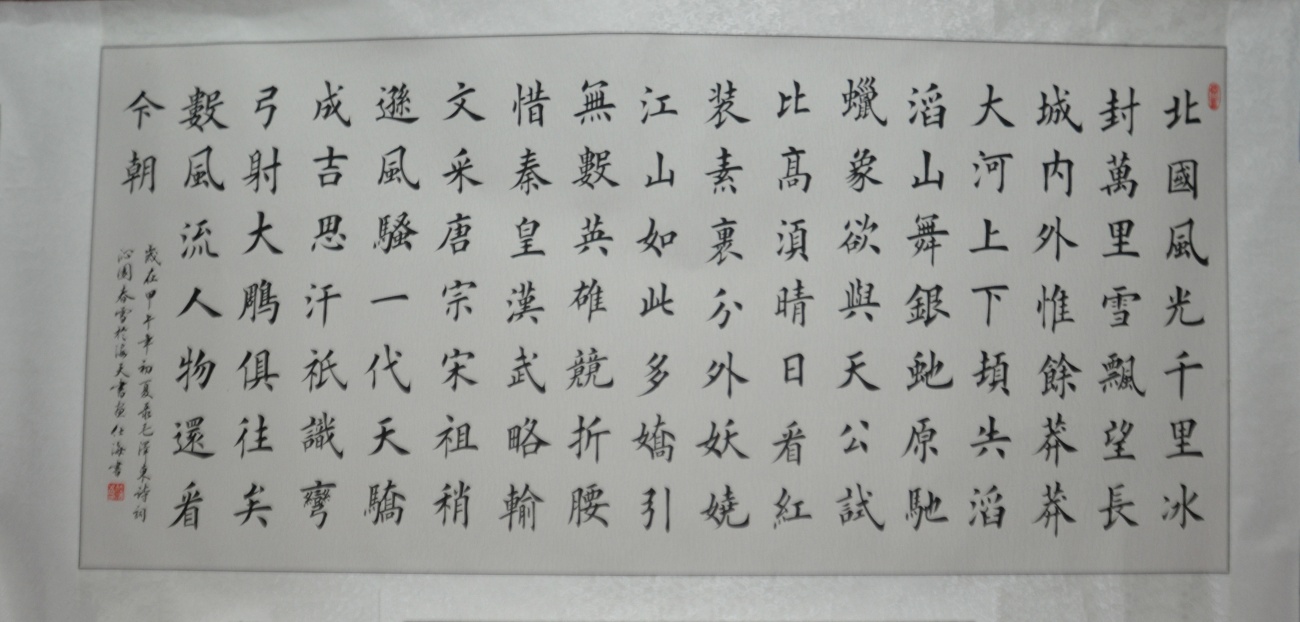 北國風光千里冰
封萬里雪飄望長
城内外惟餘莽莽
大河上下頓失滔
滔山舞銀虵原馳
蠟象欲與天公試
比髙須晴日看紅
装素裹分外妖嬈
江山如此多嬌引
無數英雄競折腰
惜秦皇漢武略輸
文采唐宗宋祖稍
遜風騷一代天驕
成吉思汗祇識彎
弓射大鵰俱往矣
數風流人物還看
今朝
歲在甲午年初夏录毛澤東詩詞
沁園春雪於海天書画仕海書